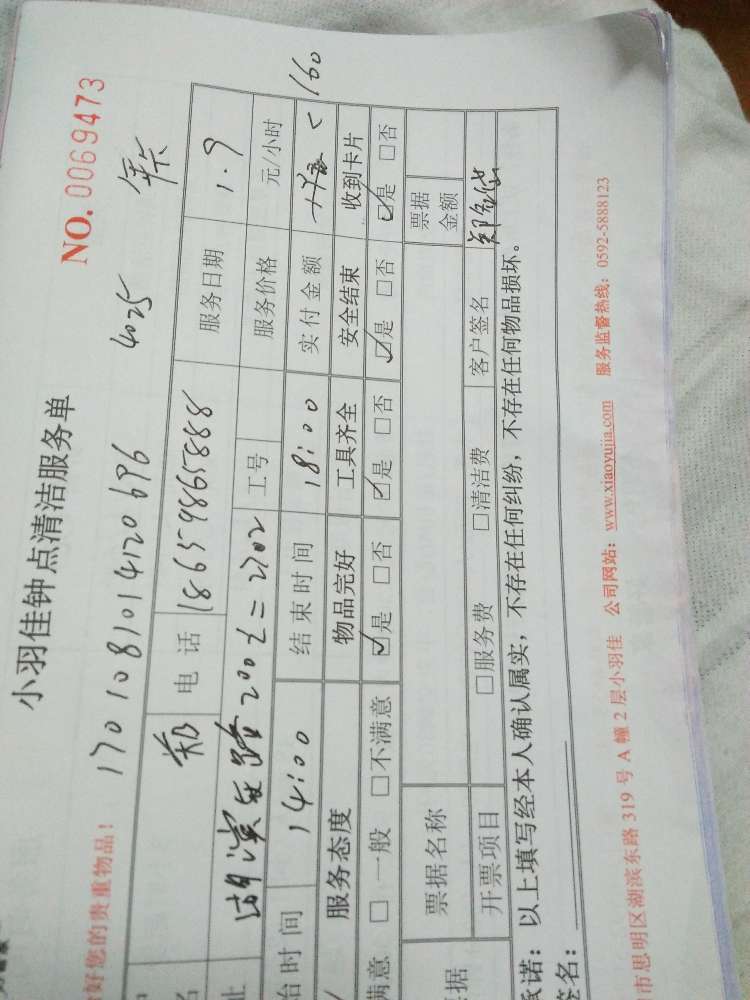 小羽佳钟点清洁服务单
NO. 0069473
好您的贵重物品！ 1701081014120696 4025
郑 电话 18659865888 服务日期 1.9
址 湖滨 路200 2702 工号 服务价格 元/小时
始时间 14:00 结束时间 18:00 实付金额 160
服务态度 物品完好 工具齐全 安全结束 收到卡片
满意 □一般 □不满意 ☑是 □否 ☑是 □否 ☑是 □否 ☑是 □否
票据名称 票据金额
据 开票项目 □服务费 □清洁费 客户签名
承诺：以上填写经本人确认属实，不存在任何纠纷，不存在任何物品损坏。
签名：
市思明区湖滨东路 319 号 A 幢 2 层小羽佳 公司网站：www.xiaoyujia.com 服务监督热线：0592-5888123